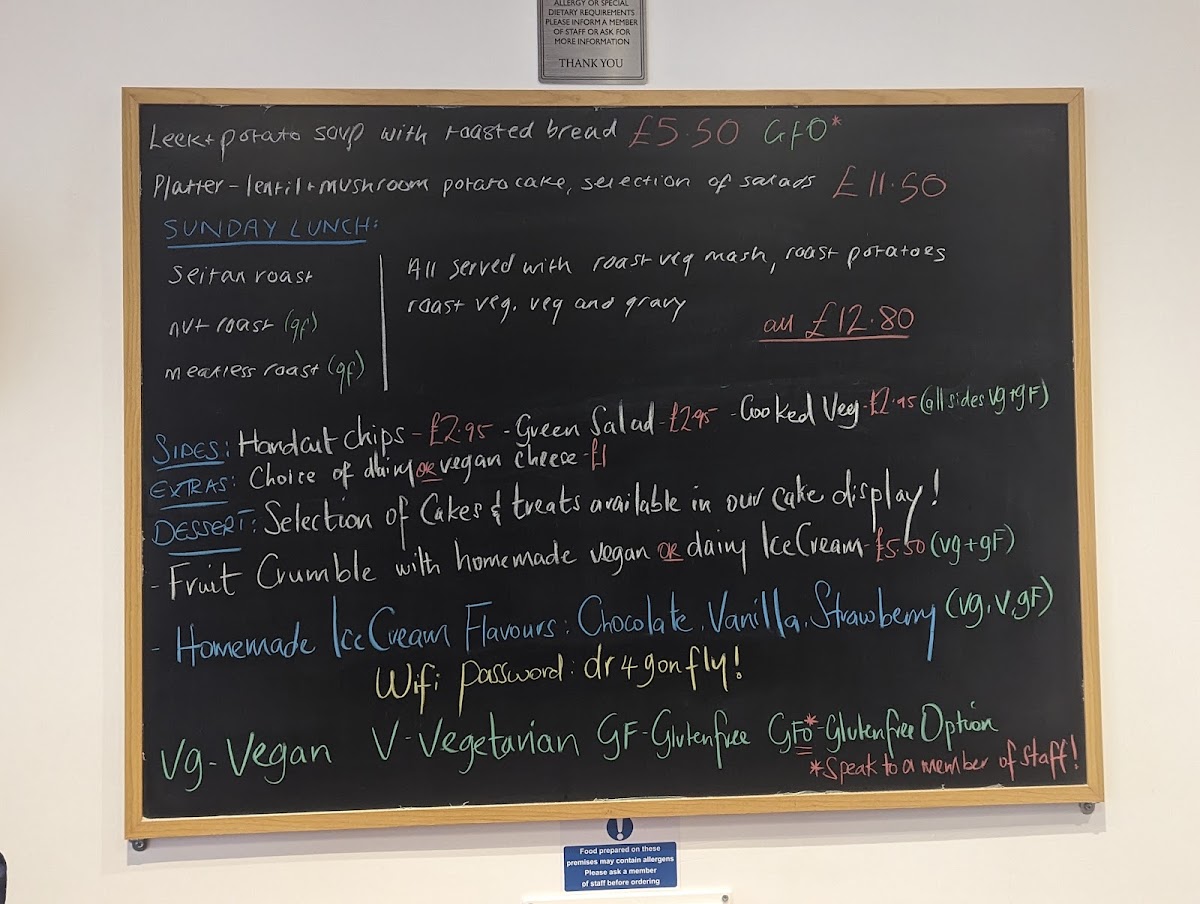 ALLERGY OR SPECIAL
DIETARY REQUIREMENTS
PLEASE INFORM A MEMBER
OF STAFF OR ASK FOR
MORE INFORMATION
THANK YOU
Leek + potato soup with toasted bread £5.50 GFO*
Platter - lentil + mushroom potato cake, selection of salads £11.50
SUNDAY LUNCH:
Seitan roast
nut roast (gf)
meatless roast (gf)
All served with roast veg mash, roast potatoes
roast veg. veg and gravy
all £12.80
SIDES: Handcut chips - £2.95 - Green Salad - £2.95 - Cooked Veg - £2.95 (all sides vg+gF)
EXTRAS: Choice of dairy OR vegan cheese - £1
DESSERT: Selection of Cakes & treats available in our cake display!
- Fruit Crumble with homemade vegan OR dairy Ice Cream - £5.50 (vg+gF)
- Homemade Ice Cream Flavours: Chocolate, Vanilla, Strawberry (vg, v, gF)
Wifi password: dr4gonfly!
Vg - Vegan V - Vegetarian GF - Glutenfree GFO* - Glutenfree Option
*Speak to a member of staff!
Food prepared on these
premises may contain allergens
Please ask a member
of staff before ordering